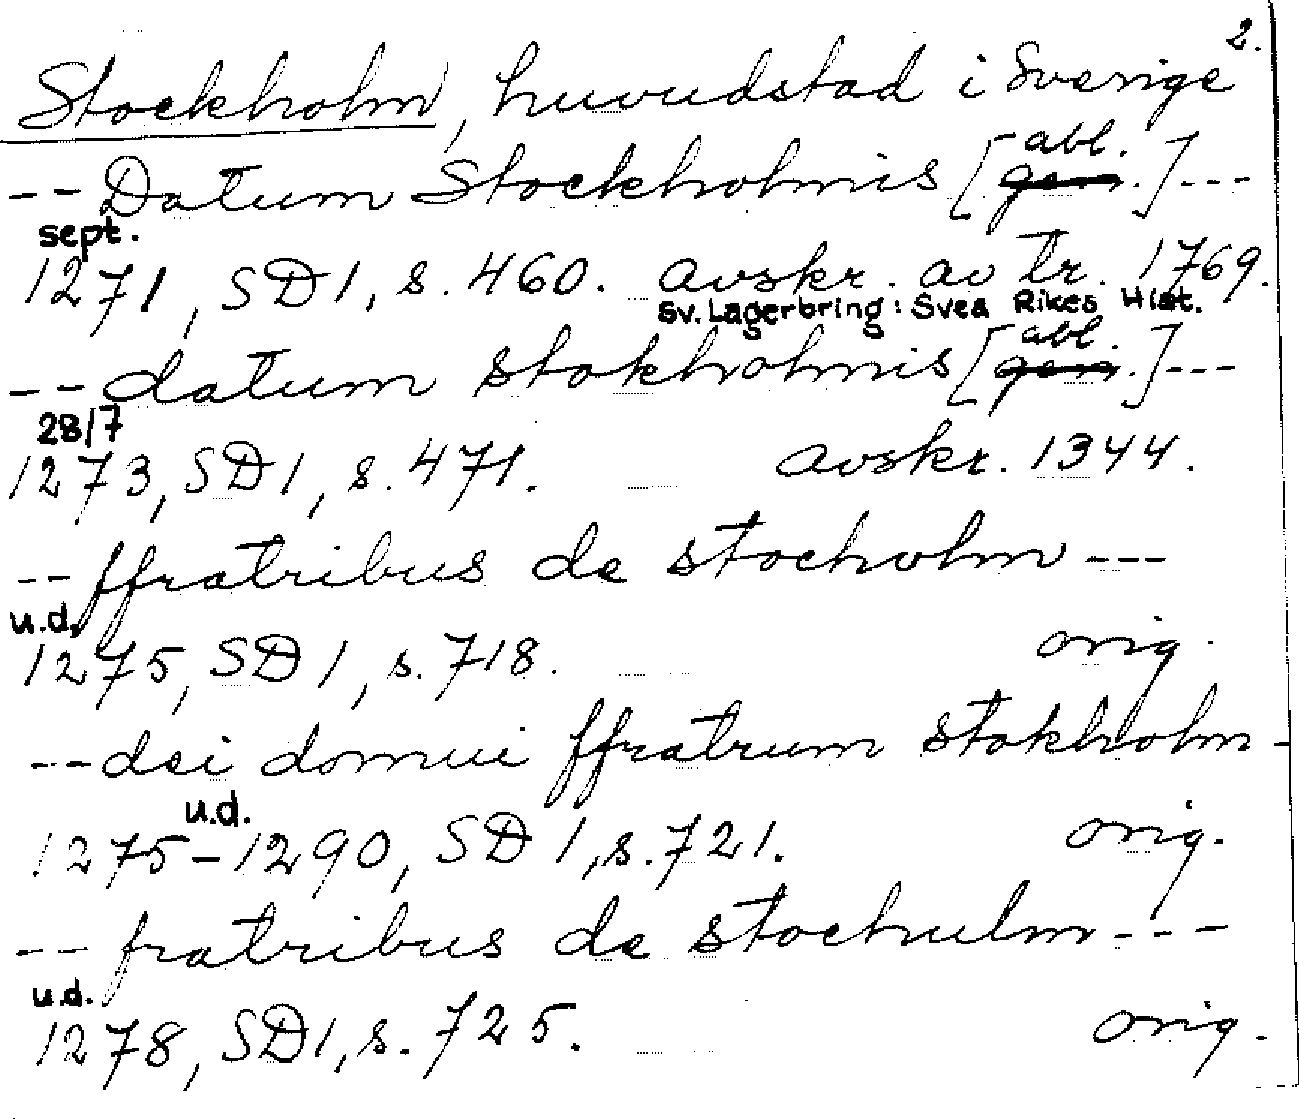 2.
Stockholm, huvudstad i Sverige
-- Datum Stockholmis [abl. gen.] ---
sept.
1271, SD 1, s. 460. avskr. av tr. 1769.
Sv. Lagerbring: Svea Rikes Hist.
-- datum stokholmis [abl. gen.] ---
28/7
1273, SD 1, s. 471. avskr. 1344.
-- ffratribus de stocholm ---
u.d.
1275, SD 1, s. 718. orig.
-- dei domui ffratrum stokholm -
u.d.
1275-1290, SD 1, s. 721. orig.
-- fratribus de stochulm ---
u.d.
1278, SD 1, s. 725. orig.